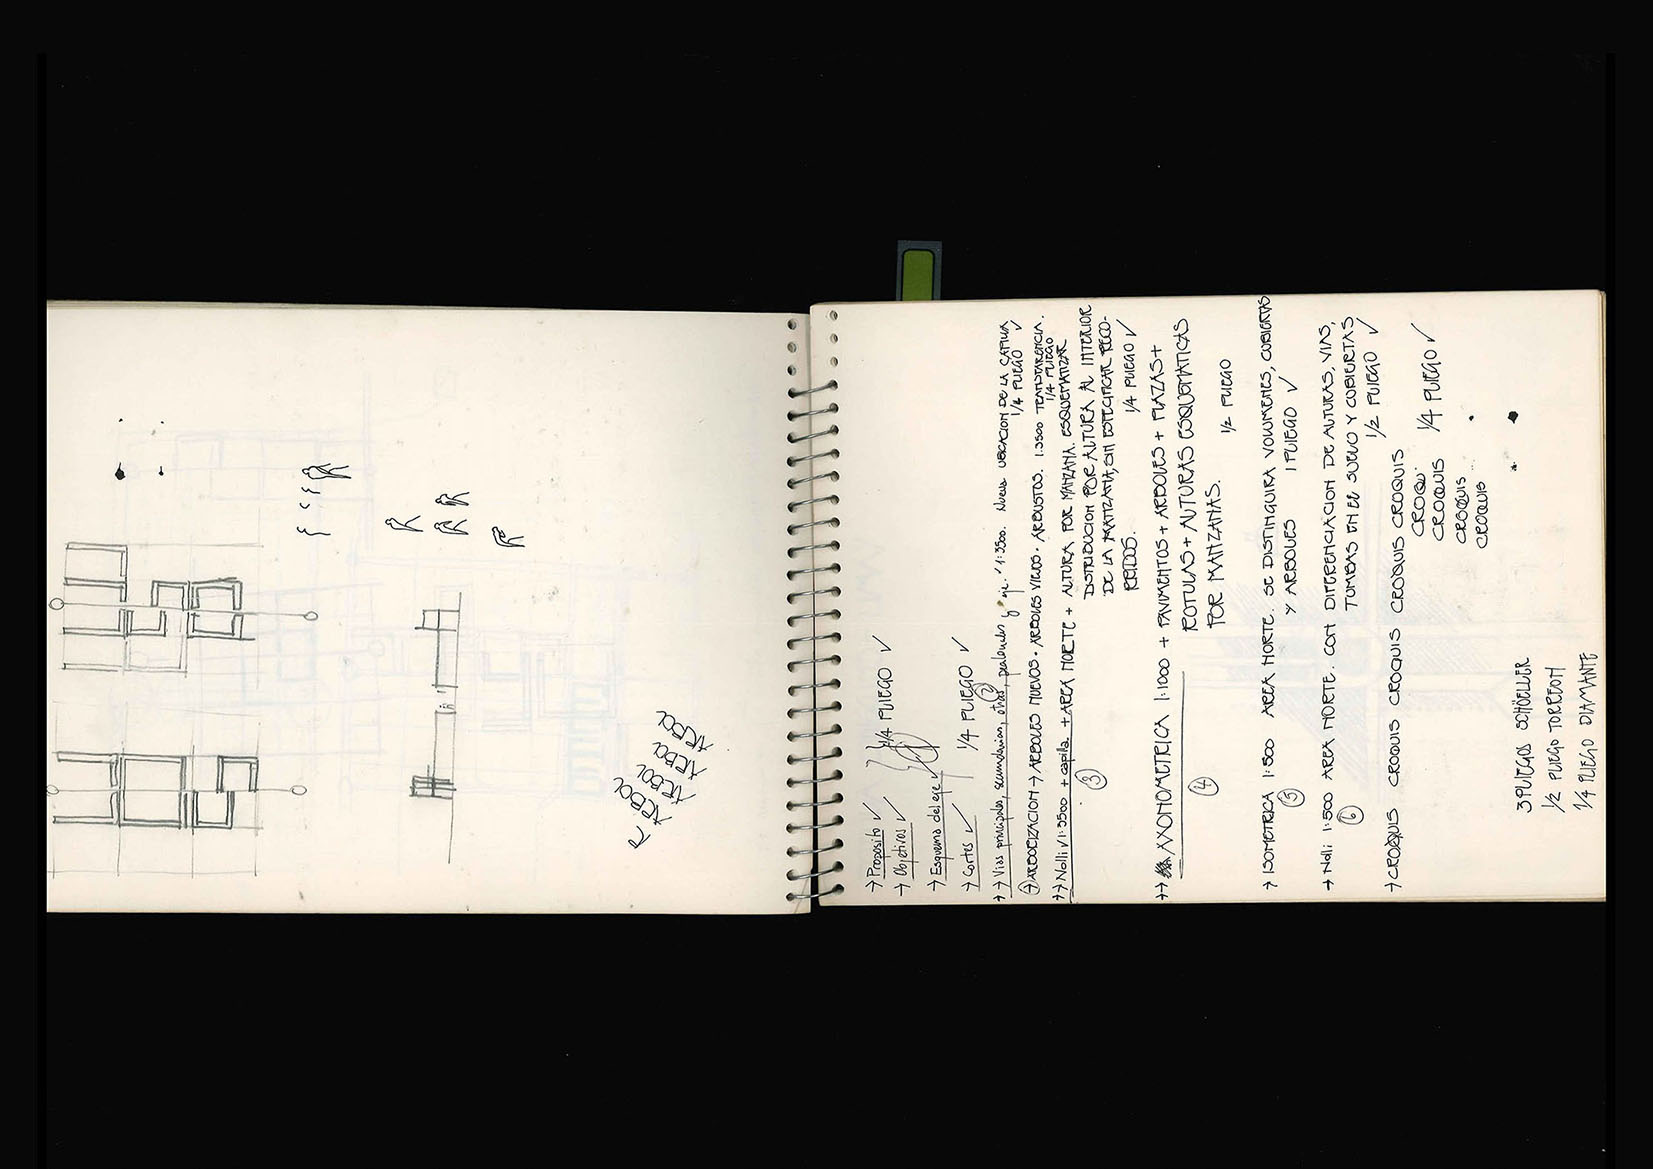 ARBOL
ARBOL
ARBOL
ARBOL
→ Proposito ✓
→ Objetivos ✓
1/4 PLIEGO ✓
→ Esquema del eje ✓
→ Cortes ✓
1/4 PLIEGO ✓
→→ Vias principales, secundarias, otras, peatonales y eje. 1:3500. Nueva UBICACION DE LA CAPILLA
1/4 PLIEGO ✓
→ ARBORIZACION → ARBOLES NUEVOS · ARBOLES VIEJOS · ARBUSTOS. 1:3500 TRANSPARENCIA.
1/4 PLIEGO
→→ Nolli 1:3500 + capilla + AREA NORTE + ALTURA POR MANZANA. ESQUEMATIZAR
DISTRIBUCION POR ALTURA AL INTERIOR
DE LA MANZANA, SIN ESPECIFICAR RECO-
RRIDOS. 1/4 PLIEGO ✓
3
→→ XXONOMETRICA 1:1000 + PAVIMENTOS + ARBOLES + PLAZAS +
ROTULAS + ALTURAS ESQUEMATICAS
POR MANZANAS. 1/2 PLIEGO
4
→ ISOMETRICA 1:500 AREA NORTE. SE DISTINGUIRA VOLUMENES, CUBIERTAS
Y ARBOLES 1 PLIEGO ✓
5
→ Nolli 1:500 AREA NORTE. CON DIFERENCIACION DE ALTURAS, VIAS,
TUMBAS EN EL SUELO Y CUBIERTAS
1/2 PLIEGO ✓
6
→ CROQUIS CROQUIS CROQUIS CROQUIS CROQUIS CROQUIS CROQUIS
CROQU.
CROQUIS 1/4 PLIEGO ✓
CROQUIS
CROQUIS
3 PLIEGOS SCHÖELLER
1/2 PLIEGO TORREON
1/4 PLIEGO DIAMANTE